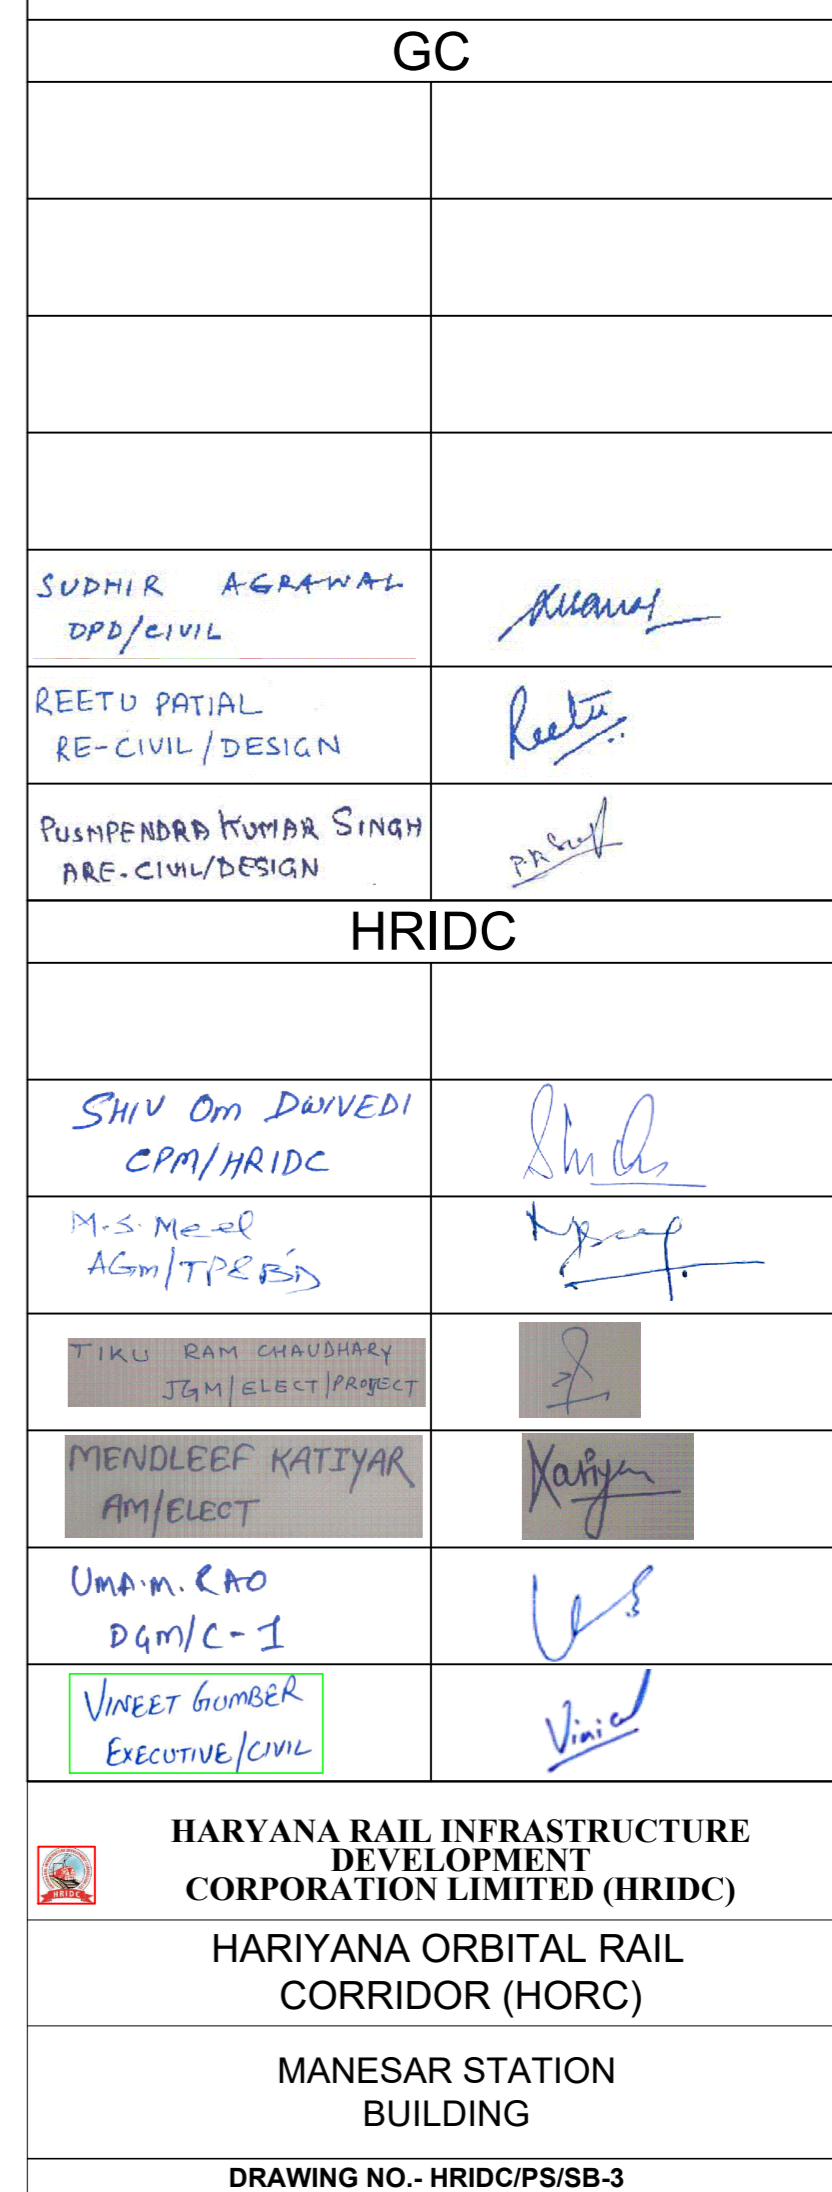 GC
SUDHIR AGRAWAL
DPD/CIVIL
REETU PATIAL
RE-CIVIL/DESIGN
Reetu
PUSHPENDRA KUMAR SINGH
ARE-CIVIL/DESIGN
HRIDC
SHIV Om DWIVEDI
CPM/HRIDC
M.S. Meel
AGm/TP&BD
TIKU RAM CHAUDHARY
JGM/ELECT/PROJECT
MENDLEEF KATIYAR
AM/ELECT
UMA.M. RAO
DGM/C-1
VINEET GUMBER
EXECUTIVE/CIVIL
HRIDC
HARYANA RAIL INFRASTRUCTURE
DEVELOPMENT
CORPORATION LIMITED (HRIDC)
HARIYANA ORBITAL RAIL
CORRIDOR (HORC)
MANESAR STATION
BUILDING
DRAWING NO.- HRIDC/PS/SB-3